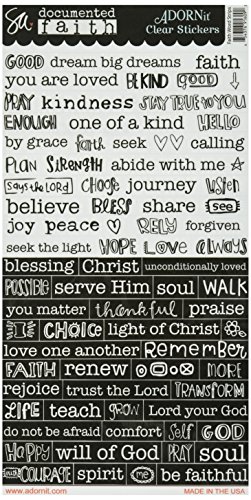 Sa documented faith
ADORNit
Clear Stickers
Faith Word Strips
GOOD dream big dreams faith
you are loved BE KIND GOOD
PRAY kindness STAY TRUE TO YOU
ENOUGH one of a kind HELLO
by grace faith seek calling
PLAN STRENGTH abide with me
says the LORD CHOOSE journey listen
believe BLESS share see
joy peace RELY forgiven
seek the light HOPE LOVE always
blessing Christ unconditionally loved
POSSIBLE serve Him soul WALK
you matter thankful praise
CHOICE light of Christ
love one another REMEMBER
FAITH renew MORE
rejoice trust the Lord TRANSFORM
LIFE teach GROW Lord your God
do not be afraid comfort Self GOD
HAPPY will of God PRAY soul
with COURAGE spirit me be faithful
www.adornit.com MADE IN THE USA